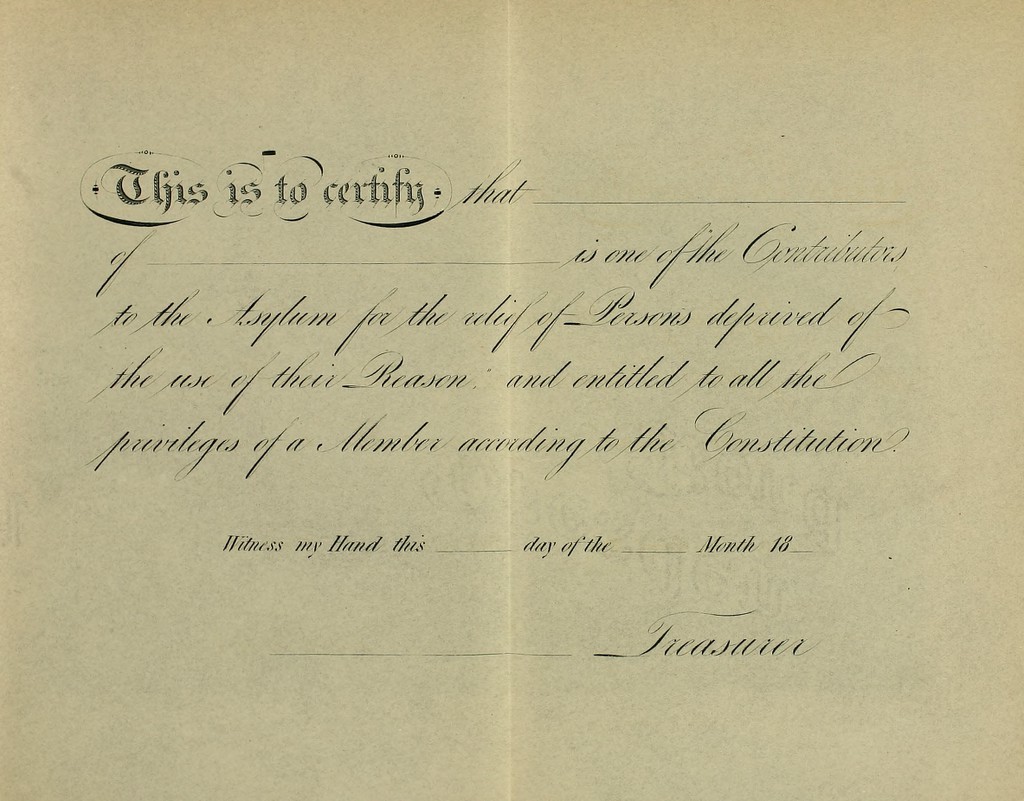 This is to certify that
of is one of the "Contributors
to the Asylum for the relief of Persons deprived of
the use of their Reason," and entitled to all the
privileges of a Member according to the Constitution.
Witness my Hand this day of the Month 18
Treasurer